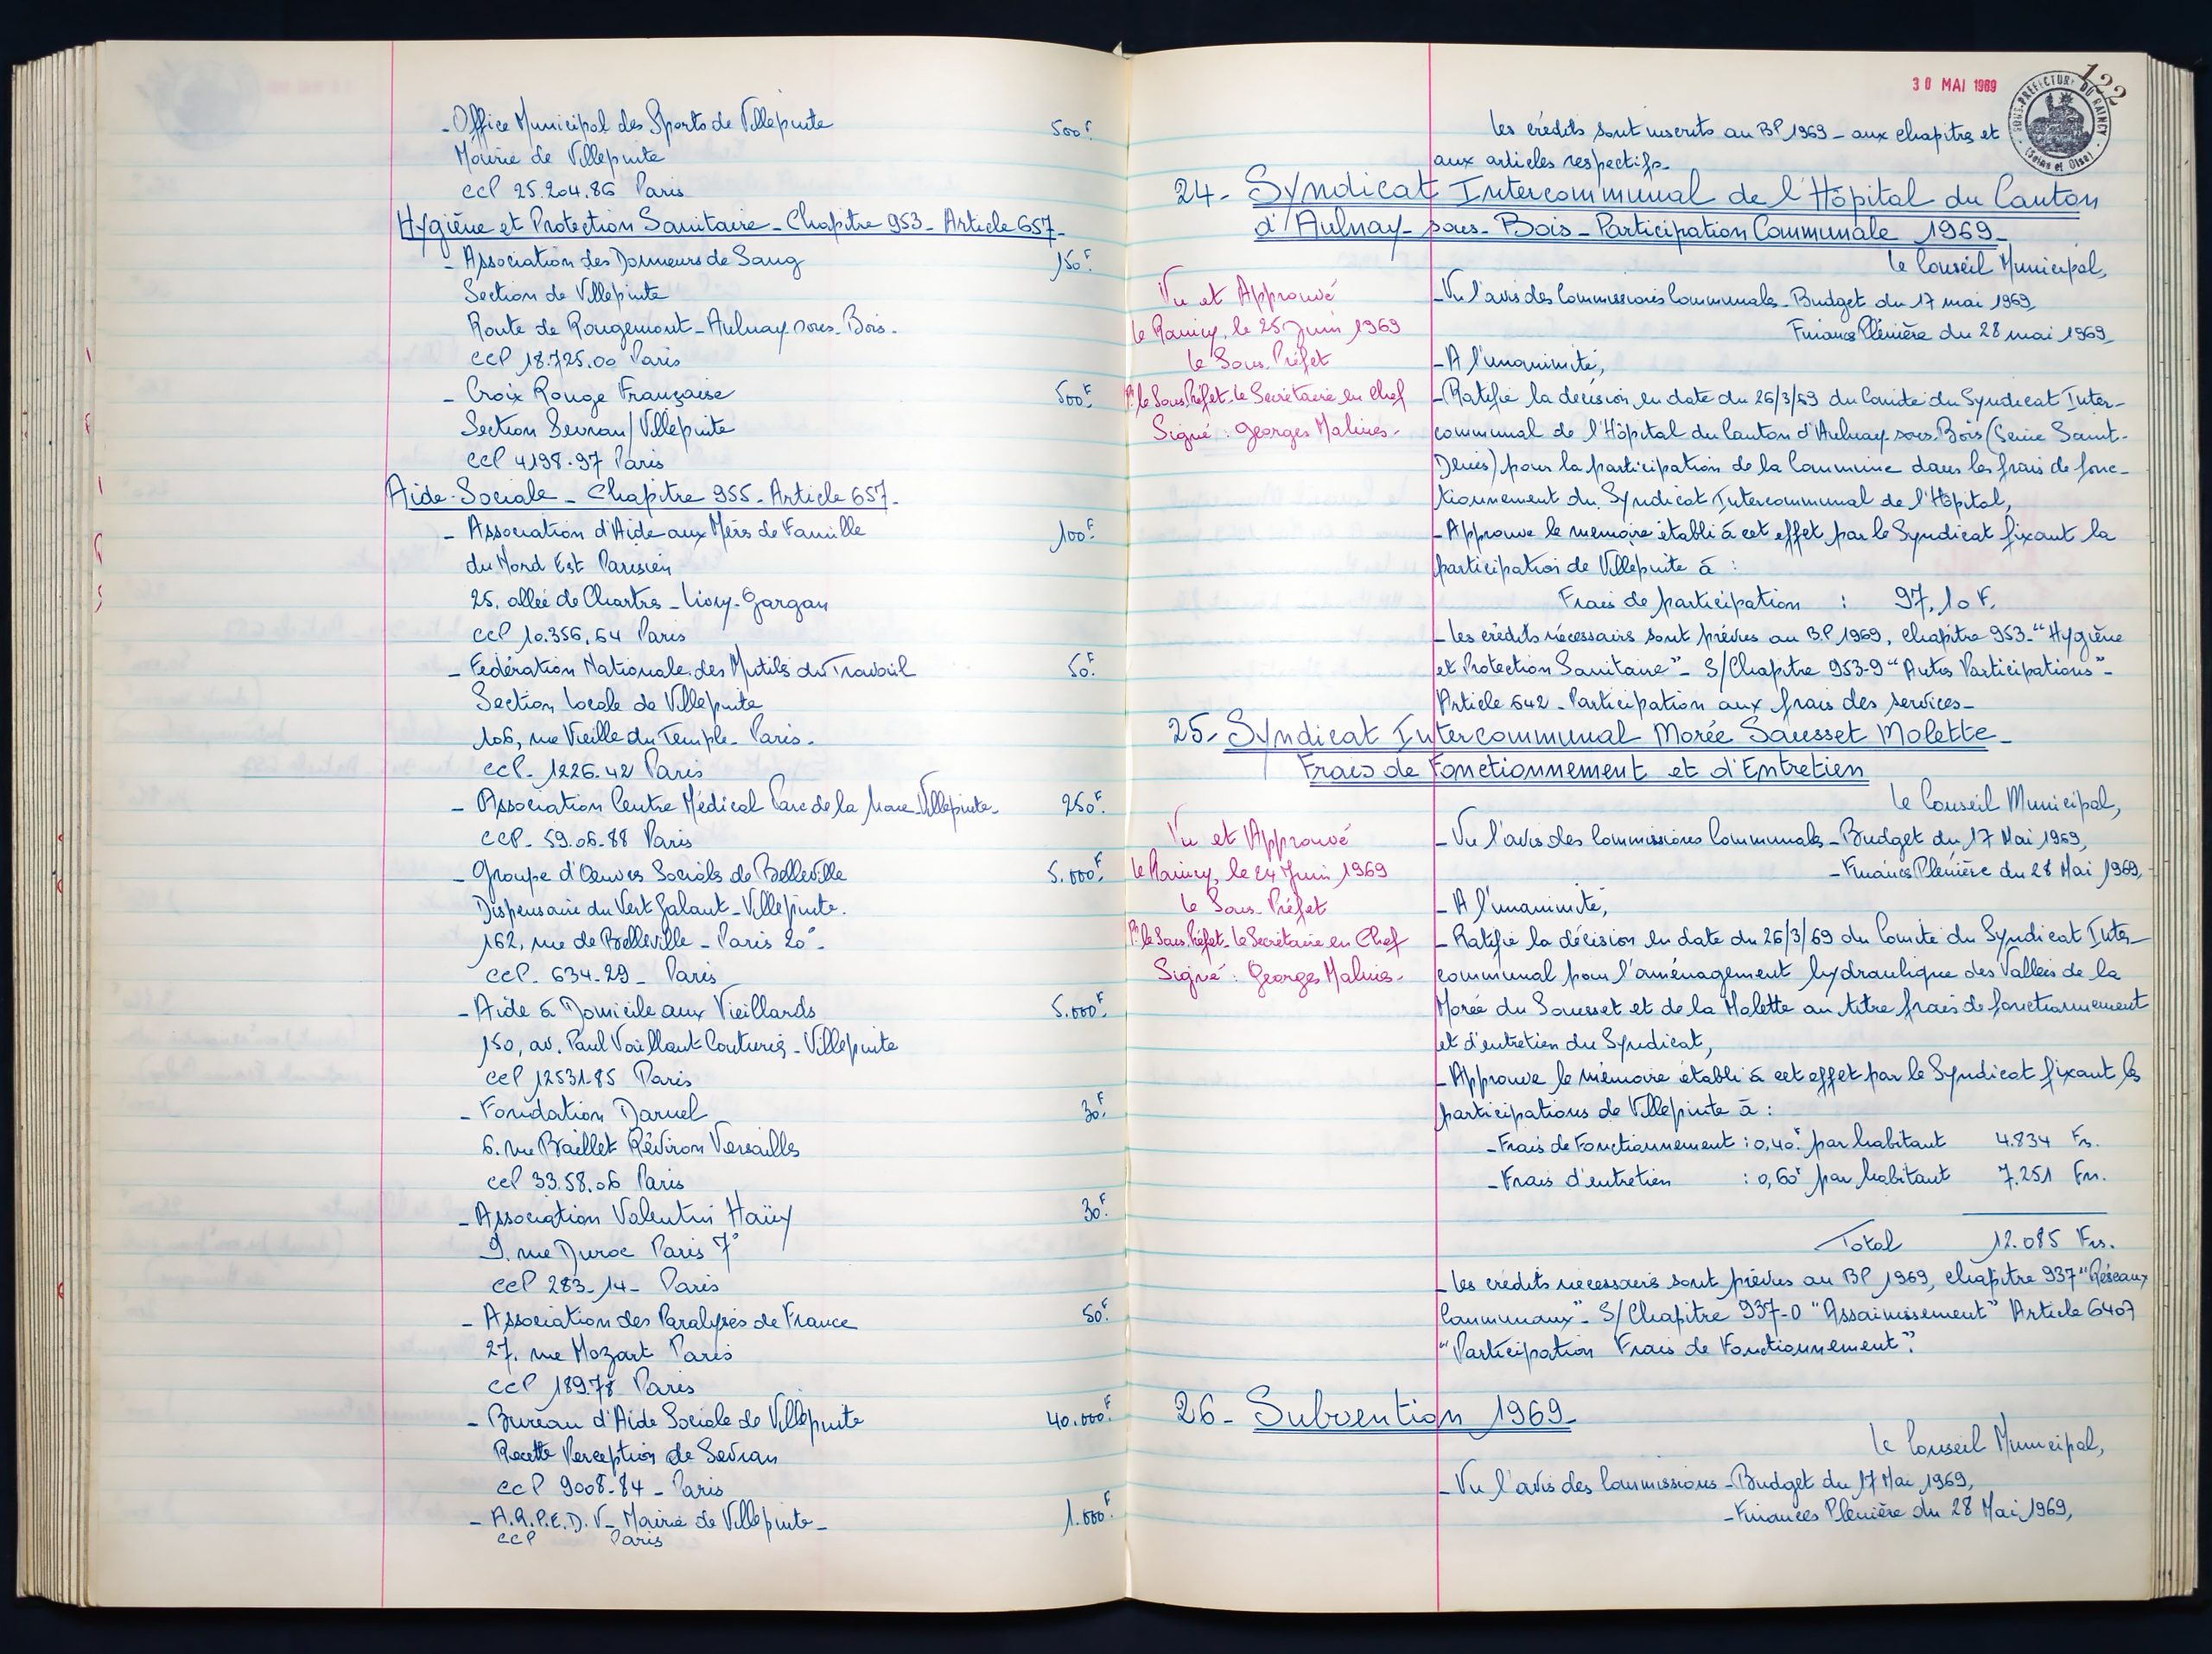 - Office Municipal des Sports de Villepinte 500F.
Mairie de Villepinte
CCP 25.204.86 Paris
Hygiène et Protection Sanitaire - Chapitre 953 - Article 657 -
- Association des Donneurs de Sang 150F.
Section de Villepinte
Route de Rougemont - Aulnay-sous-Bois -
CCP 18.725.00 Paris
- Croix Rouge Française 500F.
Section Sevran/Villepinte
CCP 4198.97 Paris
Aide-Sociale - Chapitre 955 - Article 657 -
- Association d'Aide aux Mères de Famille 100F.
du Nord Est Parisien
25, allée de Chartres - Livry-Gargan
CCP 10.356.64 Paris
- Fédération Nationale des Mutilés du Travail 50F.
Section Locale de Villepinte
106, rue Vieille du Temple - Paris -
CCP - 1226.42 Paris
- Association Centre Médical Parc de la Noue - Villepinte - 250F.
CCP - 59.06.88 Paris
- Groupe d'Oeuvres Sociales de Belleville 5.000F.
Dispensaire du Vert Galant - Villepinte.
162, rue de Belleville - Paris 20° -
CCP - 634.29 - Paris
- Aide à Domicile aux Vieillards 5.000F.
150, av. Paul Vaillant Couturier - Villepinte
CCP 12531.85 Paris
- Fondation Daruel 30F.
6, rue Baillet Réviron Versailles
CCP 33.58.06 Paris
- Association Valentin Haüy 30F.
9, rue Duroc Paris 7°
CCP 283.14 - Paris
- Association des Paralysés de France 50F.
27, rue Mozart Paris
CCP 189.78 Paris
- Bureau d'Aide Sociale de Villepinte 40.000F.
Recette Perception de Sevran
CCP 9008-84 - Paris
- A.R.P.E.D.V - Mairie de Villepinte - 1.000F.
CCP Paris
30 MAI 1969
122
SOUS-PRÉFECTURE DU RAINCY
(Seine et Oise)
Les crédits sont inscrits au BP 1969 - aux chapitres et
aux articles respectifs -
24 - Syndicat Intercommunal de l'Hôpital du Canton
d'Aulnay-sous-Bois - Participation Communale 1969 -
Le Conseil Municipal,
- Vu l'avis des Commissions Communales - Budget du 17 mai 1969,
Finances Plénière du 28 mai 1969,
- A l'unanimité,
- Ratifie la décision en date du 26/3/69 du Comité du Syndicat Inter-
communal de l'Hôpital du Canton d'Aulnay-sous-Bois (Seine Saint-
Denis) pour la participation de la Commune dans les frais de fonc-
tionnement du Syndicat Intercommunal de l'Hôpital,
- Approuve le mémoire établi à cet effet par le Syndicat fixant la
participation de Villepinte à :
Frais de participation : 97,10 F.
- Les crédits nécessaires sont prévus au B.P 1969, Chapitre 953 - "Hygiène
et Protection Sanitaire" - S/Chapitre 953-9 "Autres Participations" -
Article 642 - Participation aux frais des services -
Vu et Approuvé
Le Raincy, le 25 Juin 1969
Le Sous-Préfet
Pr le Sous-Préfet - Le Secrétaire en Chef
Signé : Georges Malines -
25 - Syndicat Intercommunal Morée Sausset Molette -
Frais de Fonctionnement et d'Entretien
Le Conseil Municipal,
- Vu l'avis des Commissions Communales - Budget du 17 Mai 1969,
- Finances Plénière du 28 Mai 1969,
- A l'unanimité,
- Ratifie la décision en date du 26/3/69 du Comité du Syndicat Inter-
communal pour l'aménagement hydraulique des Vallées de la
Morée du Sausset et de la Molette au titre frais de fonctionnement
et d'entretien du Syndicat,
- Approuve le mémoire établi à cet effet par le Syndicat fixant les
participations de Villepinte à :
- Frais de Fonctionnement : 0,40F par habitant 4.834 Frs.
- Frais d'entretien : 0,60F par habitant 7.251 Frs.
Total 12.085 Frs.
- Les crédits nécessaires sont prévus au BP 1969, chapitre 937 "Réseaux
Communaux" - S/Chapitre 937-0 "Assainissement" Article 6407
"Participation Frais de Fonctionnement".
Vu et Approuvé
Le Raincy, le 24 Juin 1969
Le Sous-Préfet
Pr le Sous-Préfet - Le Secrétaire en Chef
Signé : Georges Malines -
26 - Subvention 1969 -
Le Conseil Municipal,
- Vu l'avis des Commissions - Budget du 17 Mai 1969,
- Finances Plénière du 28 Mai 1969,